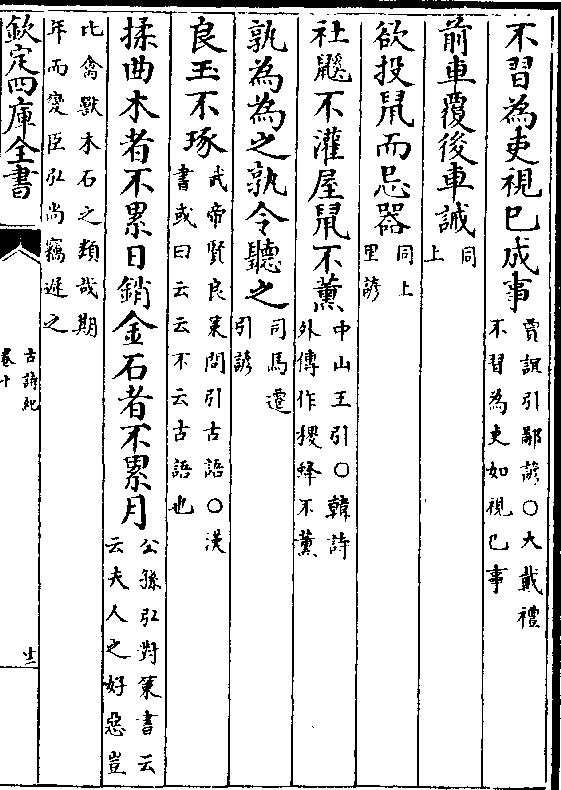 不習為吏視已成事賈誼引鄙諺○大戴禮不習為吏如視已事
前車覆後車誡同上
欲投鼠而忌器同上里諺
社鼷不灌屋鼠不薰中山王引○韓詩外傳作稷蜂不薰
孰為為之孰令聽之司馬遷引諺
良玉不琢武帝賢良策問引古語○漢書或曰云云不云古語也
揉曲木者不累日銷金石者不累月公孫弘對策書云云夫人之好惡豈
比禽獸木石之類哉期年而變臣弘尚竊遲之
欽定四庫全書
古詩紀
卷十